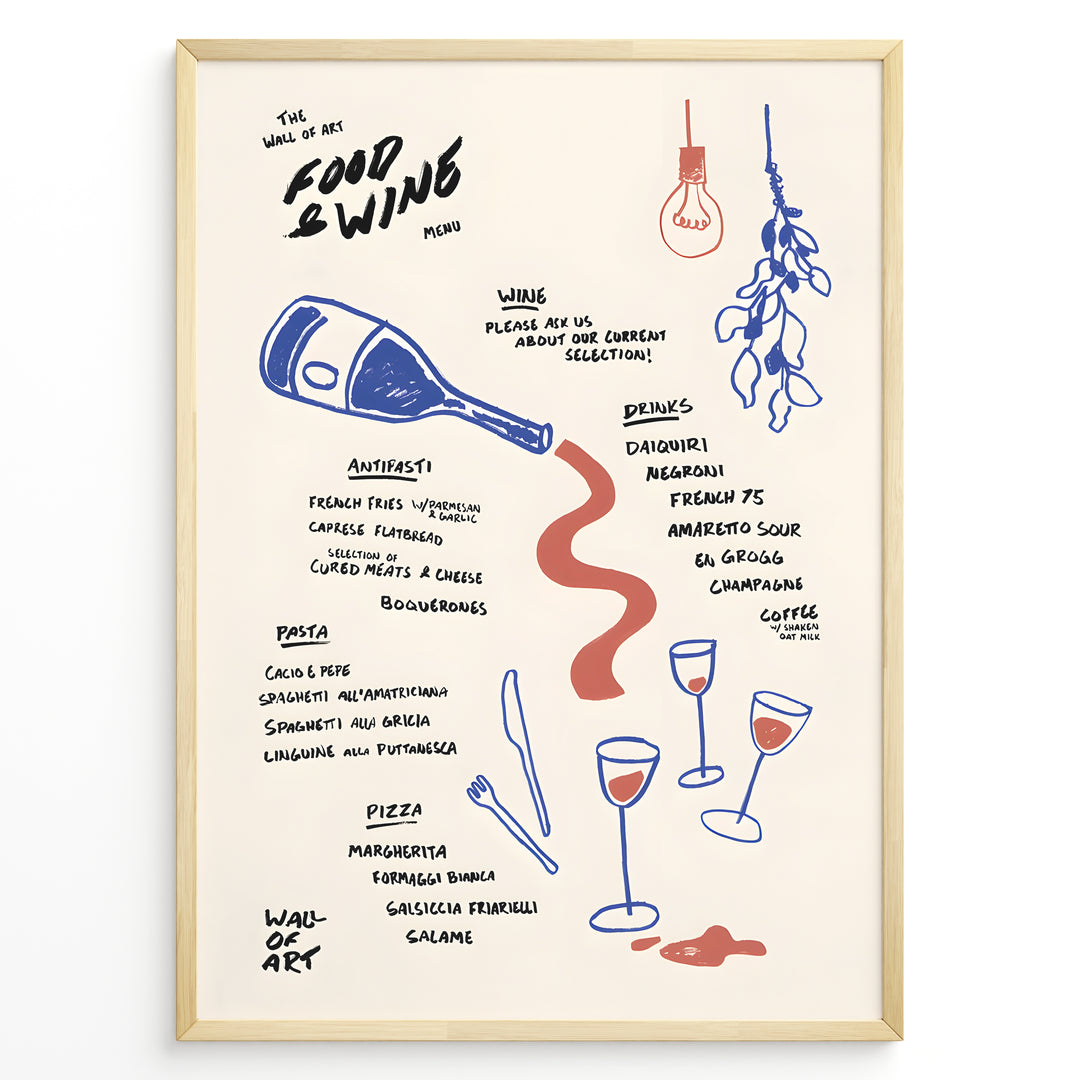 THE
WALL OF ART
FOOD
& WINE
MENU
WINE
PLEASE ASK US
ABOUT OUR CURRENT
SELECTION!
DRINKS
DAIQUIRI
NEGRONI
FRENCH 75
AMARETTO SOUR
EN GROGG
CHAMPAGNE
COFFEE
W/ SHAKEN
OAT MILK
ANTIPASTI
FRENCH FRIES W/PARMESAN
& GARLIC
CAPRESE FLATBREAD
SELECTION OF
CURED MEATS & CHEESE
BOQUERONES
PASTA
CACIO E PEPE
SPAGHETTI ALL'AMATRICIANA
SPAGHETTI ALLA GRICIA
LINGUINE ALLA PUTTANESCA
PIZZA
MARGHERITA
FORMAGGI BIANCA
SALSICCIA FRIARIELLI
SALAME
WALL
OF
ART